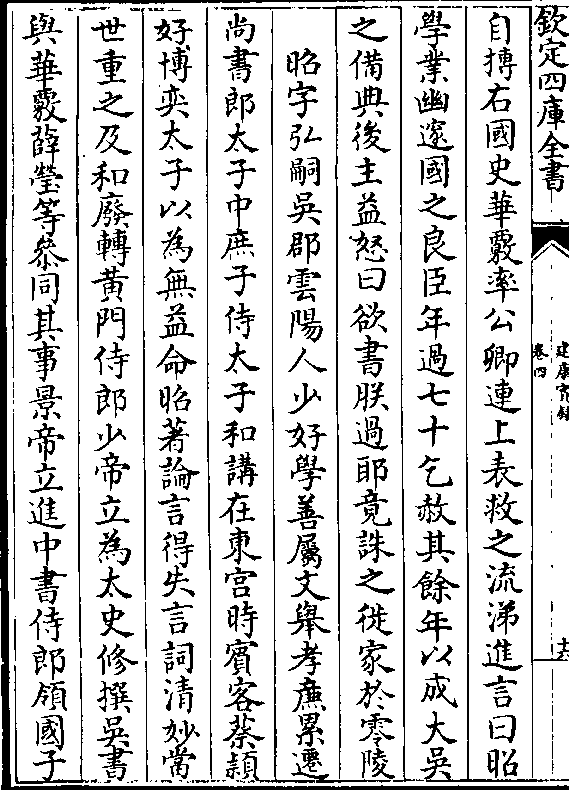 欽定四庫全書
建康實録
卷四
自摶右國史華覈率公卿連上表救之流涕進言曰昭
學業幽邃國之良臣年過七十乞赦其餘年以成大吳
之備典後主益怒曰欲書朕過耶竟誅之徙家於零陵
昭字弘嗣吳郡雲陽人少好學善屬文舉孝廉累遷
尚書郎太子中庶子侍太子和講在東宮時賓客蔡頴
好博奕太子以為無益命昭著論言得失言詞清妙當
世重之及和廢轉黃門侍郎少帝立為太史修撰吳書
與華覈薛瑩等叅同其事景帝立進中書侍郎領國子